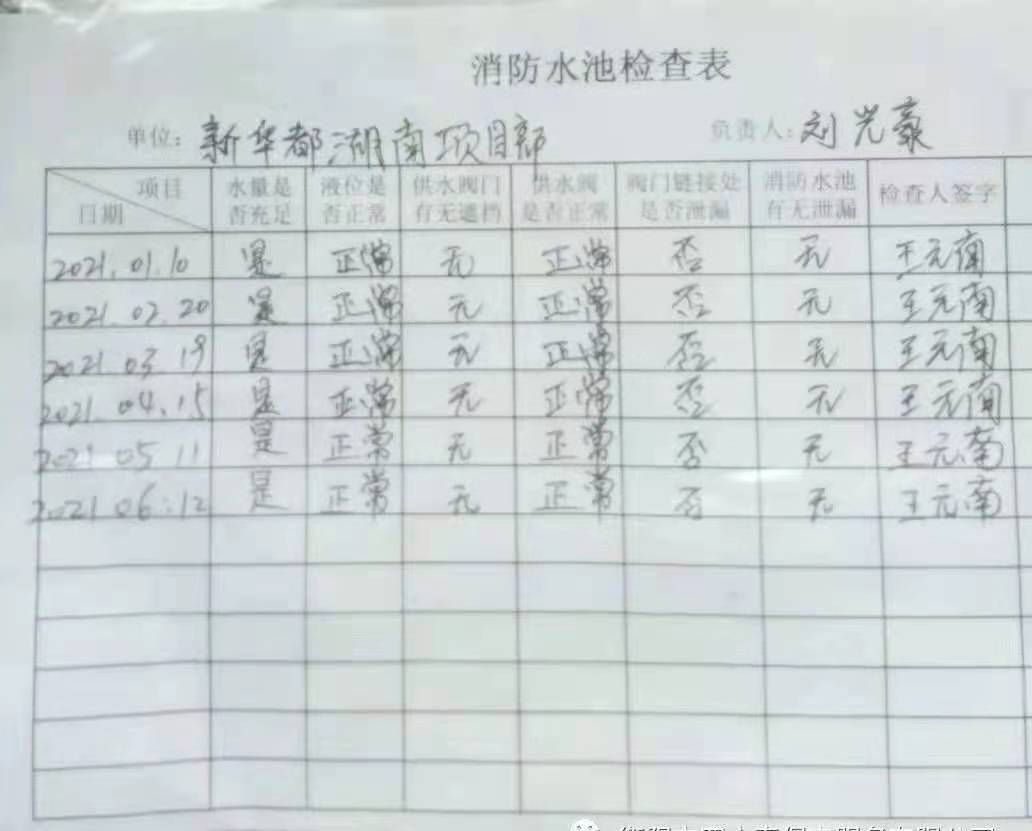 消防水池检查表
单位：新华都湖南项目部 负责人：刘光豪
项目 水量是 液位是 供水阀门 供水阀 阀门链接处 消防水池 检查人签字
日期 否充足 否正常 有无遮挡 是否正常 是否泄漏 有无泄漏
2021.01.10 是 正常 无 正常 否 无 王元南
2021.02.20 是 正常 无 正常 否 无 王元南
2021.03.19 是 正常 无 正常 否 无 王元南
2021.04.15 是 正常 无 正常 否 无 王元南
2021.05.11 是 正常 无 正常 否 无 王元南
2021.06.12 是 正常 无 正常 否 无 王元南